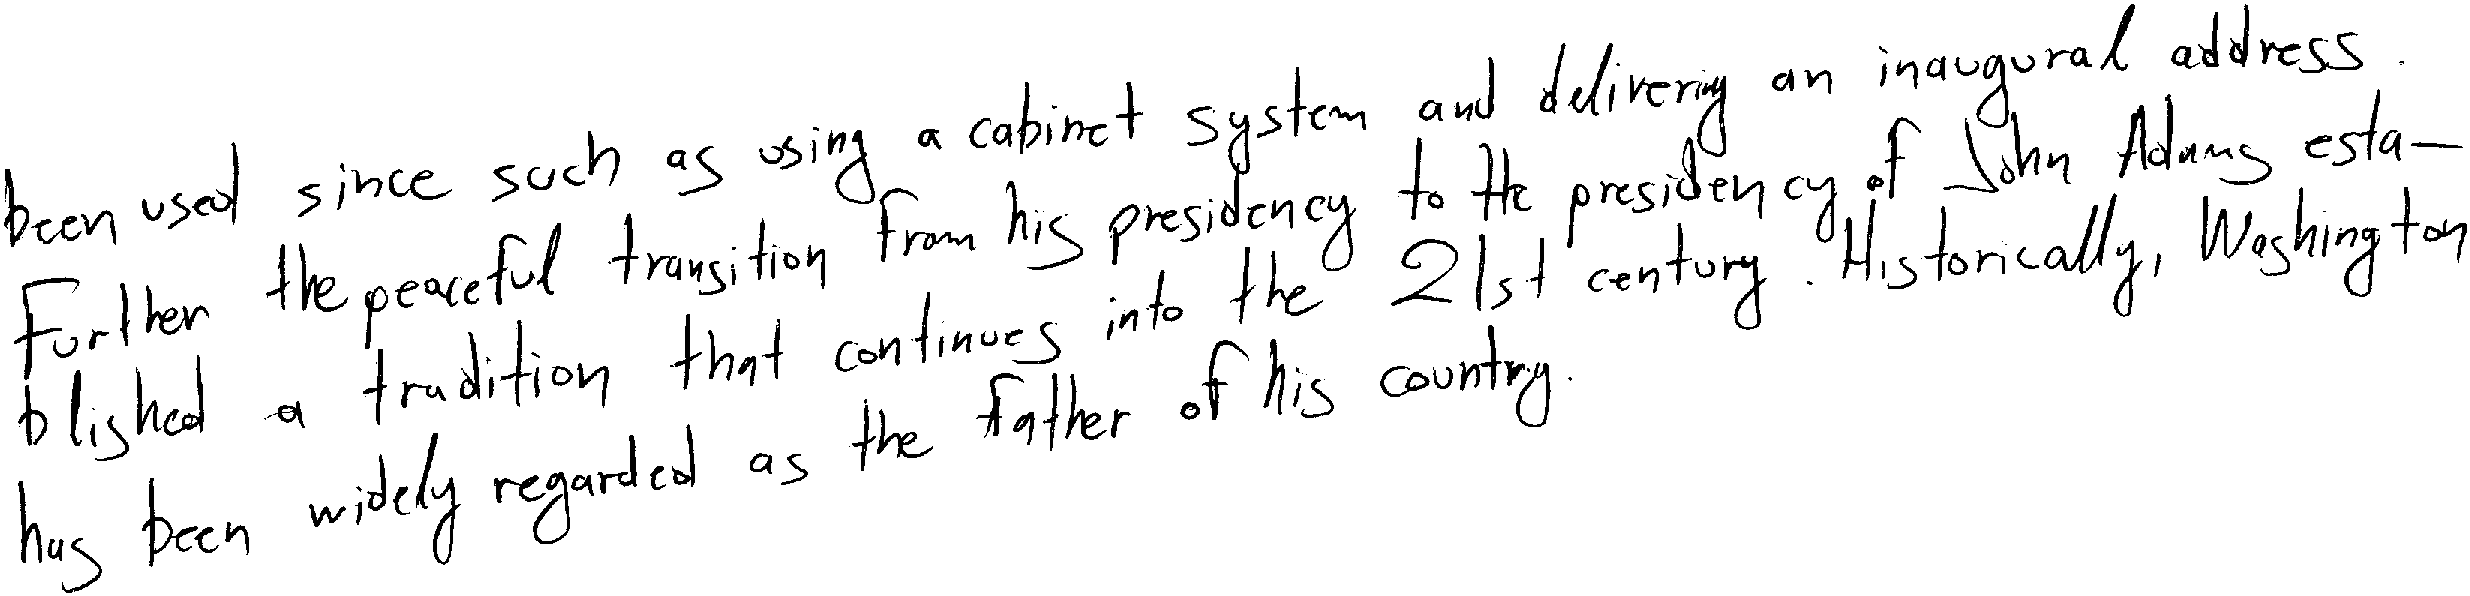 been used since such as using a cabinet system and delivering an inaugural address.
Further the peaceful transition from his presidency to the presidency of John Adams esta-
blished a tradition that continues into the 21st century. Historically, Washington
has been widely regarded as the father of his country.